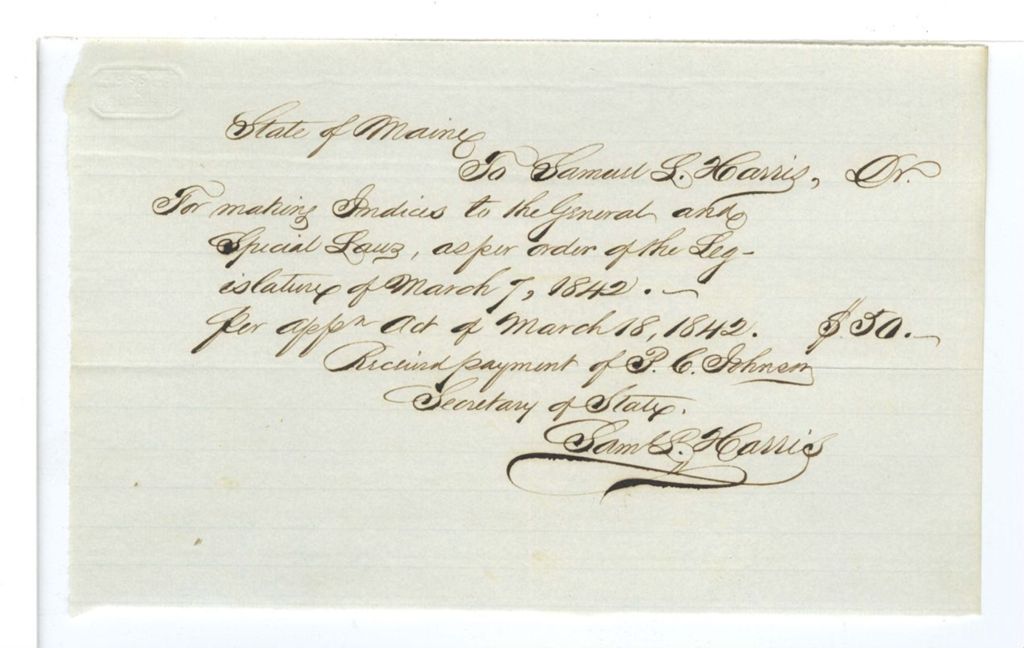 State of Maine
To Samuel L. Harris, Dr.
For making Indices to the General and
Special Laws, as per order of the Leg-
islature of March 7, 1842. —
per appn Act of March 18, 1842. $50. —
Received payment of P. C. Johnson
Secretary of State.
Saml L. Harris